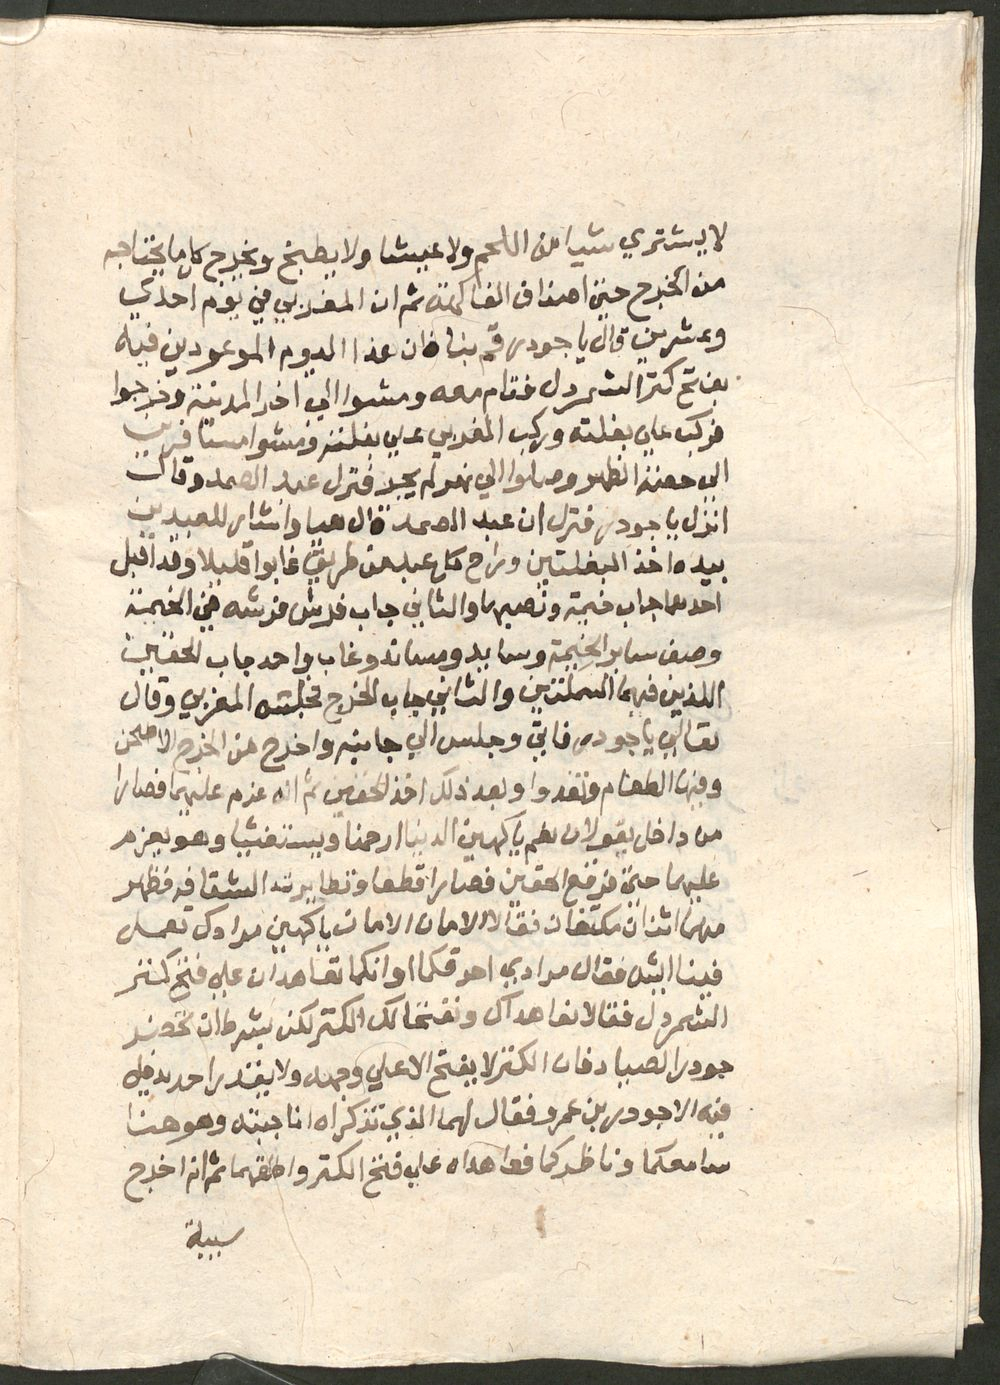 لا يشتري شيا من اللحم ولا عيشا ولا يطبخ ويخرج كل ما يحتاجه
من الخرج حتى اصناف الفاكهة ثم ان المغربي في يوم احدي
وعشرين قال يا جودر قم بنا فان هذا اليوم الموعودين فيه
بفاتح كنز الشمردل فقام معه ومشوا الي اخر المدينة وخرجوا
فركب علي بغلته وركب المغربي علي بغلته ومشوا مسافرين
الي حصة الظهر وصلوا الي نهر لم يجد فنزل عبد الصمد وقال
انزل يا جودر فنزل ان عبد الصمد قال هيا واشار للعبيدين
بيده اخذ البغلتين وراح كل عبد من طريق غابوا قليلا وقد اقبل
احدهما جاب خيمة ونصبها والثاني جاب فرش فرشه في الخيمة
وصف ساير الخيمة وسايد ومساند وغاب واحد جاب الحقين
اللذين فيهما السمكتين والثاني جاب الخرج فجلسه المغربي وقال
تعالي يا جودر فاتي وجلس الي جانبه واخرج من الخرج الاصحن
وفيها الطعام وتغدوا وبعد ذلك اخذ الحقين ثم انه عزم عليهما فصارا
من داخل يقولان نعم يا كهين الدنيا ارحمنا ويستغيثيا وهو يعزم
عليهما حتي فرقع الحقين فصارا قطعا وتطايرت الشقافه فظهر
منهما اثنان مكتفان فقالا الامان الامان يا كهين مرادك تعمل
فينا ايش فقال مرادي احرقكما او انكما تعاهدان علي فتح كنز
الشمردل فقالا نعاهدك ونفتح لك الكنز لكن بشرط ان تحضر
جودر الصياد فان الكنز لا يفتح الا علي وجهه ولا يقدر احد يدخل
فيه الا جودر بن عمر فقال لهما الذي تذكراه انا جبته وهو هنا
سامعكما وناظركما فعاهداه علي فتح الكنز واطلقهما ثم انه اخرج
سبيبة